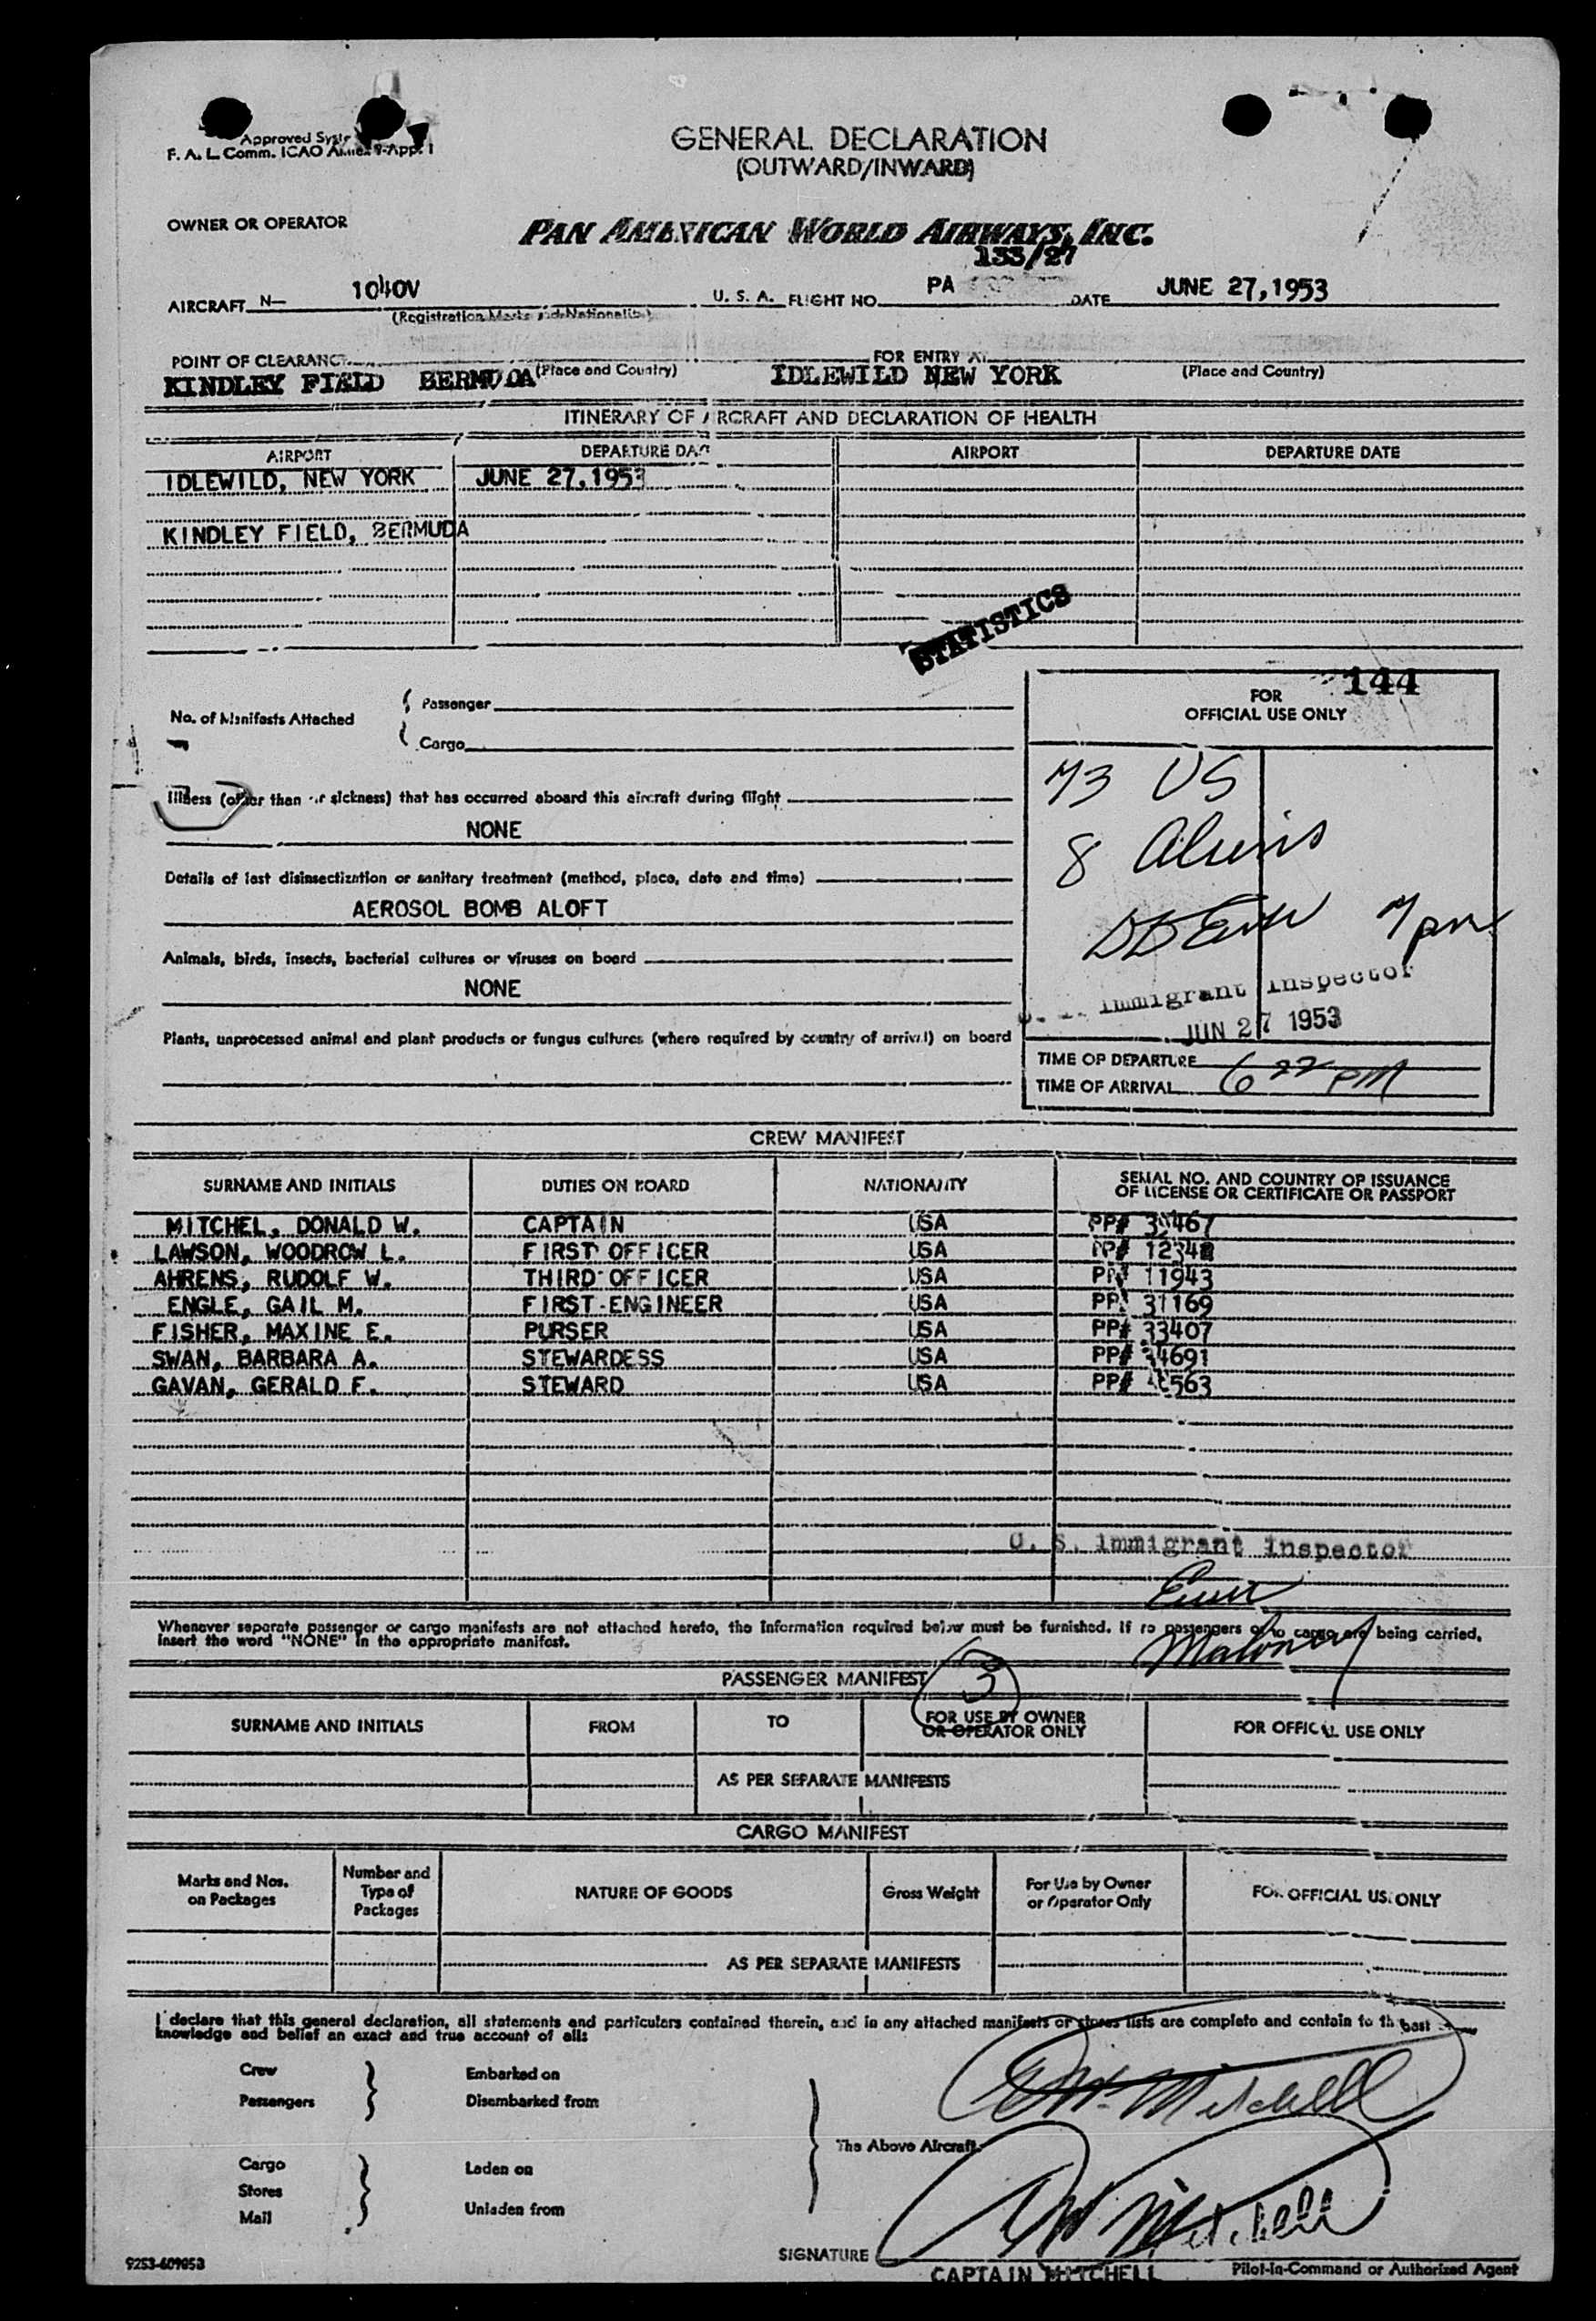 Approved
F. A. L. Comm. ICAO Annex 9-App. 1
GENERAL DECLARATION
(OUTWARD/INWARD)
OWNER OR OPERATOR
PAN AMERICAN WORLD AIRWAYS, INC.
133/27
AIRCRAFT N- 1040V U. S. A. FLIGHT NO. PA DATE JUNE 27,1953
(Registration Marks and Nationality)
POINT OF CLEARANCE FOR ENTRY AT
KINDLEY FIELD BERMUDA (Place and Country) IDLEWILD NEW YORK (Place and Country)
ITINERARY OF AIRCRAFT AND DECLARATION OF HEALTH
AIRPORT DEPARTURE DATE AIRPORT DEPARTURE DATE
IDLEWILD, NEW YORK JUNE 27,1953
KINDLEY FIELD, BERMUDA
STATISTICS
144
FOR
OFFICIAL USE ONLY
No. of Manifests Attached
Passenger
Cargo
73 US
Illness (other than air sickness) that has occurred aboard this aircraft during flight
NONE
8 Aliens
Details of last disinsectization or sanitary treatment (method, place, date and time)
AEROSOL BOMB ALOFT
7pm
Animals, birds, insects, bacterial cultures or viruses on board
NONE
Immigrant Inspector
JUN 27 1953
Plants, unprocessed animal and plant products or fungus cultures (where required by country of arrival) on board
TIME OF DEPARTURE
TIME OF ARRIVAL 6 22 PM
CREW MANIFEST
SURNAME AND INITIALS DUTIES ON BOARD NATIONALITY SERIAL NO. AND COUNTRY OF ISSUANCE
OF LICENSE OR CERTIFICATE OR PASSPORT
MITCHEL, DONALD W. CAPTAIN USA PP#
LAWSON, WOODROW L. FIRST OFFICER USA PP#
AHRENS, RUDOLF W. THIRD OFFICER USA PP# 11943
ENGLE, GAIL M. FIRST ENGINEER USA PP# 31169
FISHER, MAXINE E. PURSER USA PP# 33407
SWAN, BARBARA A. STEWARDESS USA PP#
GAVAN, GERALD F. STEWARD USA PP#
U. S. Immigrant Inspector
Whenever separate passenger or cargo manifests are not attached hereto, the information required below must be furnished. If no passengers or no cargo are being carried,
insert the word "NONE" in the appropriate manifest.
Maloney
PASSENGER MANIFEST
3
SURNAME AND INITIALS FROM TO FOR USE BY OWNER
OR OPERATOR ONLY FOR OFFICIAL USE ONLY
AS PER SEPARATE MANIFESTS
CARGO MANIFEST
Marks and Nos.
on Packages Number and
Type of
Packages NATURE OF GOODS Gross Weight For Use by Owner
or Operator Only FOR OFFICIAL USE ONLY
AS PER SEPARATE MANIFESTS
I declare that this general declaration, all statements and particulars contained therein, and in any attached manifests or stores lists are complete and contain to the best
knowledge and belief an exact and true account of all:
Crew
Passengers
Embarked on
Disembarked from
D W Mitchell
The Above Aircraft
Cargo
Stores
Mail
Laden on
Unladen from
D W Mitchell
SIGNATURE
CAPTAIN MITCHELL Pilot-in-Command or Authorized Agent
9253-609853